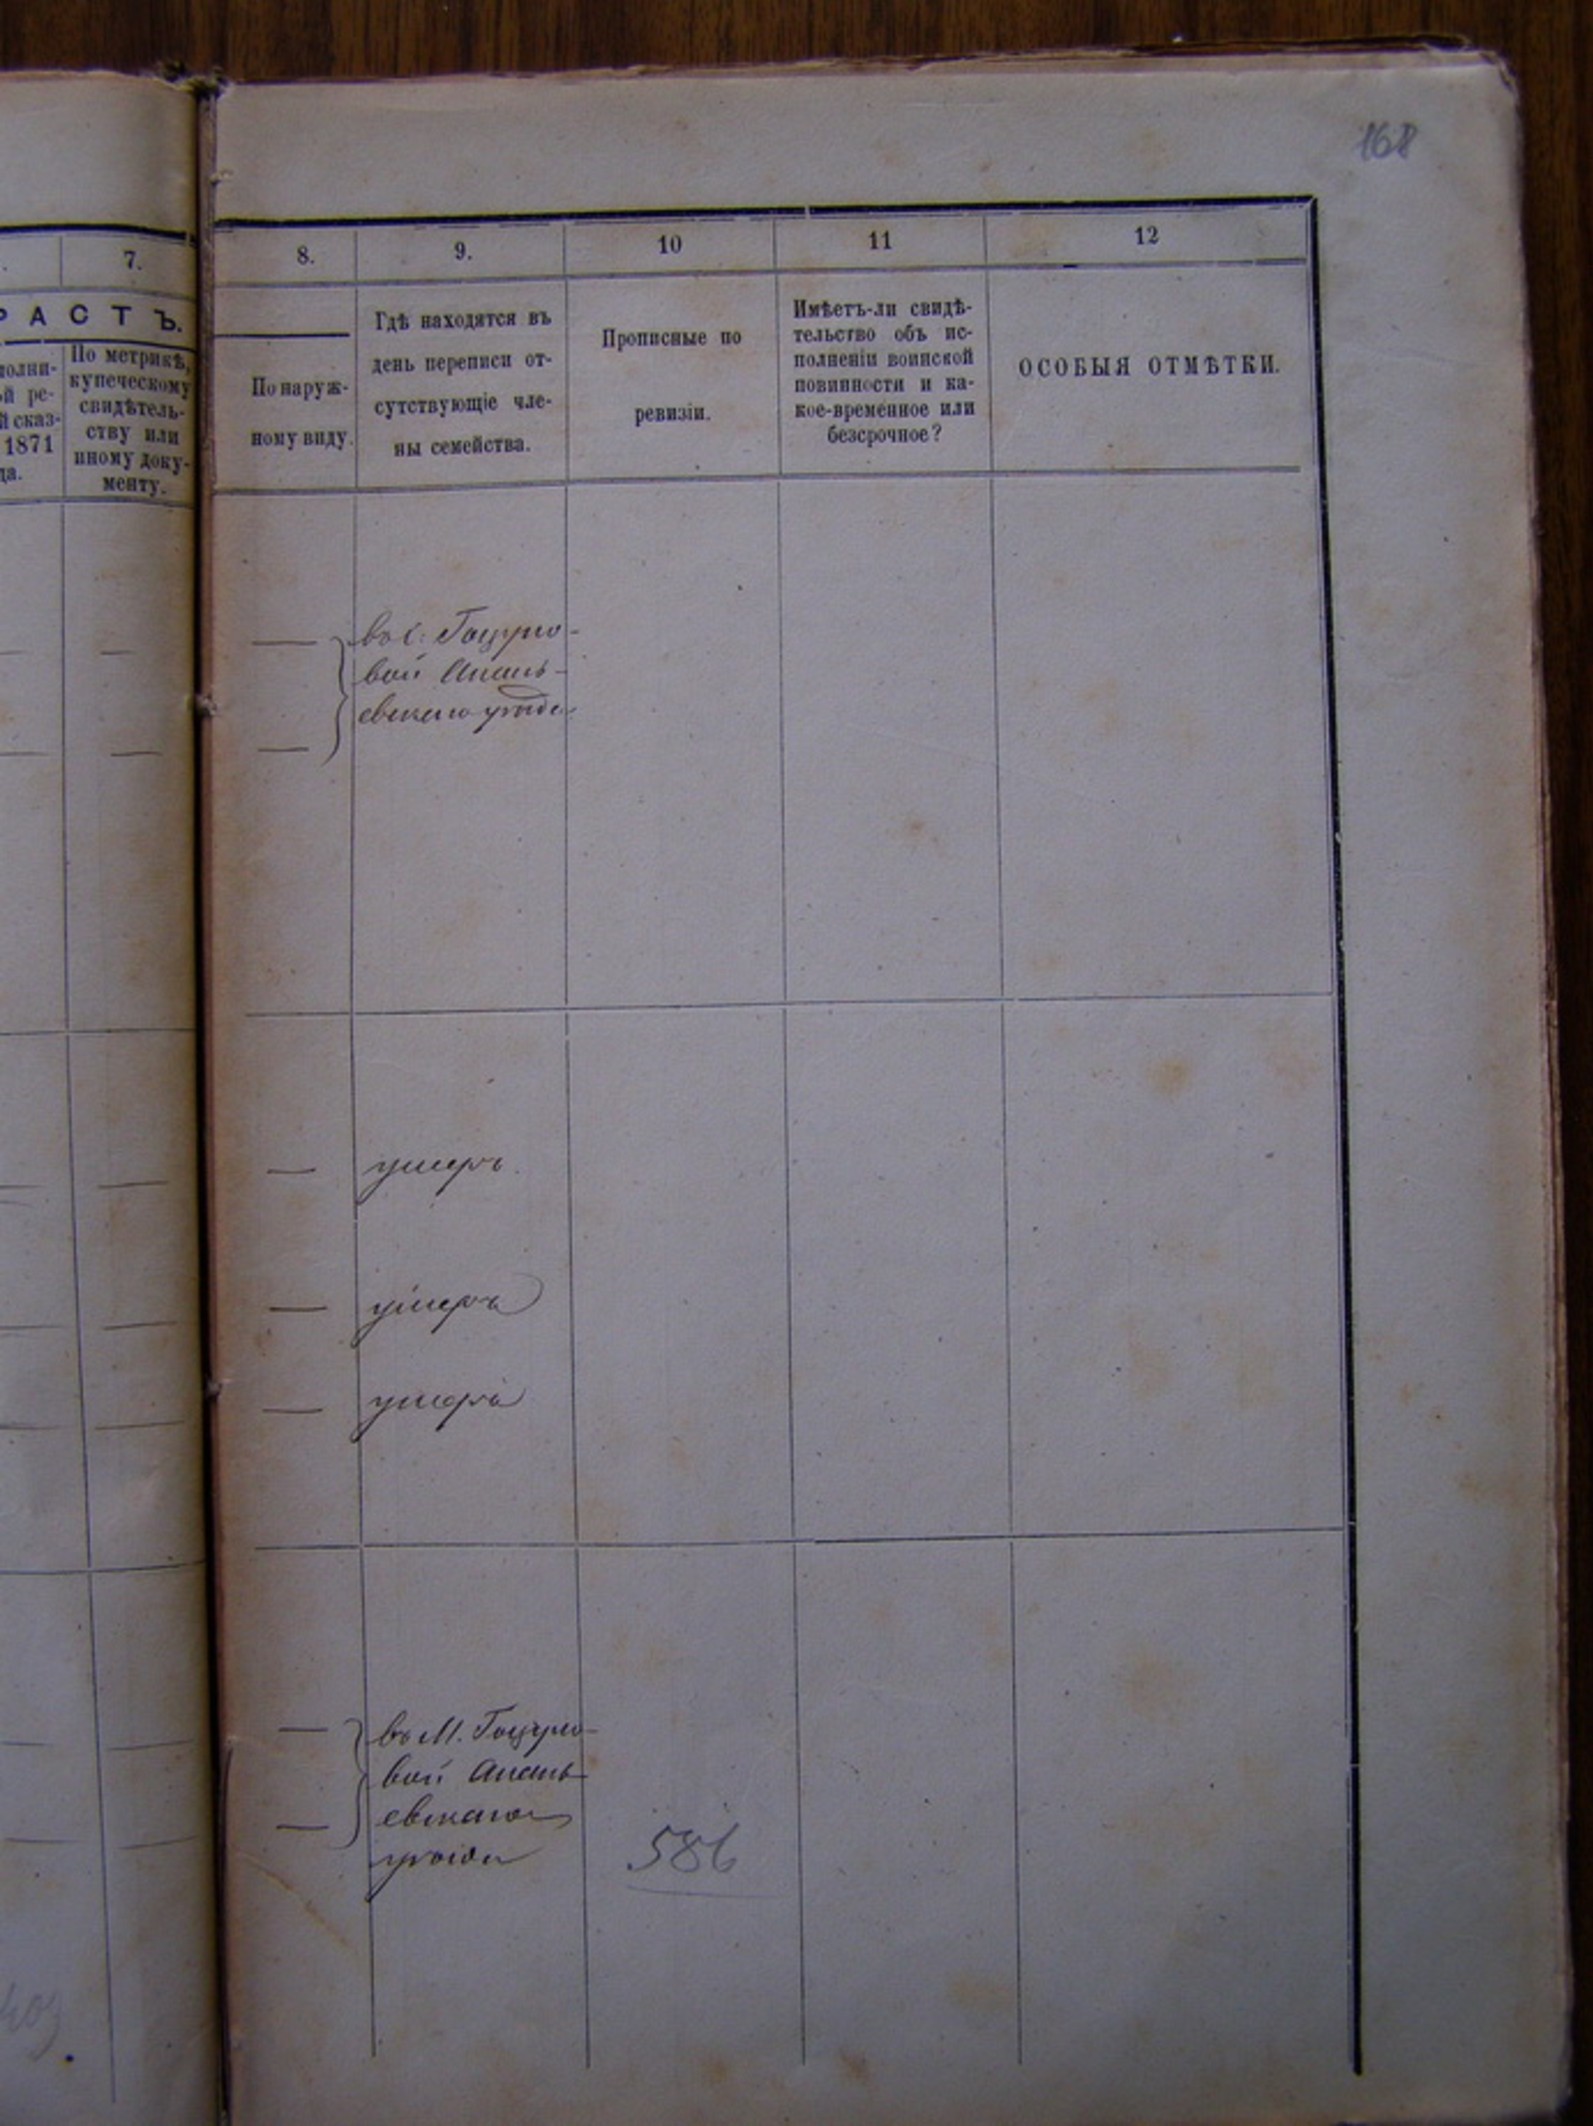 168
7.
РАСТЪ.
полни-
й ре-
й сказ-
1871
да.
По метрикѣ,
купеческому
свидѣтель-
ству или
иному доку-
менту.
8.
9.
10
11
12
По наруж-
ному виду.
Гдѣ находятся въ
день переписи от-
сутствующіе чле-
ны семейства.
Прописные по
ревизіи.
Имѣетъ-ли свидѣ-
тельство объ ис-
полненіи воинской
повинности и ка-
кое-временное или
безсрочное?
ОСОБЫЯ ОТМѢТКИ.
въ с. Гоцуло-
вой Анань-
евскаго уѣзда
умеръ.
умеръ
умеръ
въ М. Гоцуло-
вой Анань-
евскаго
уѣзда
586